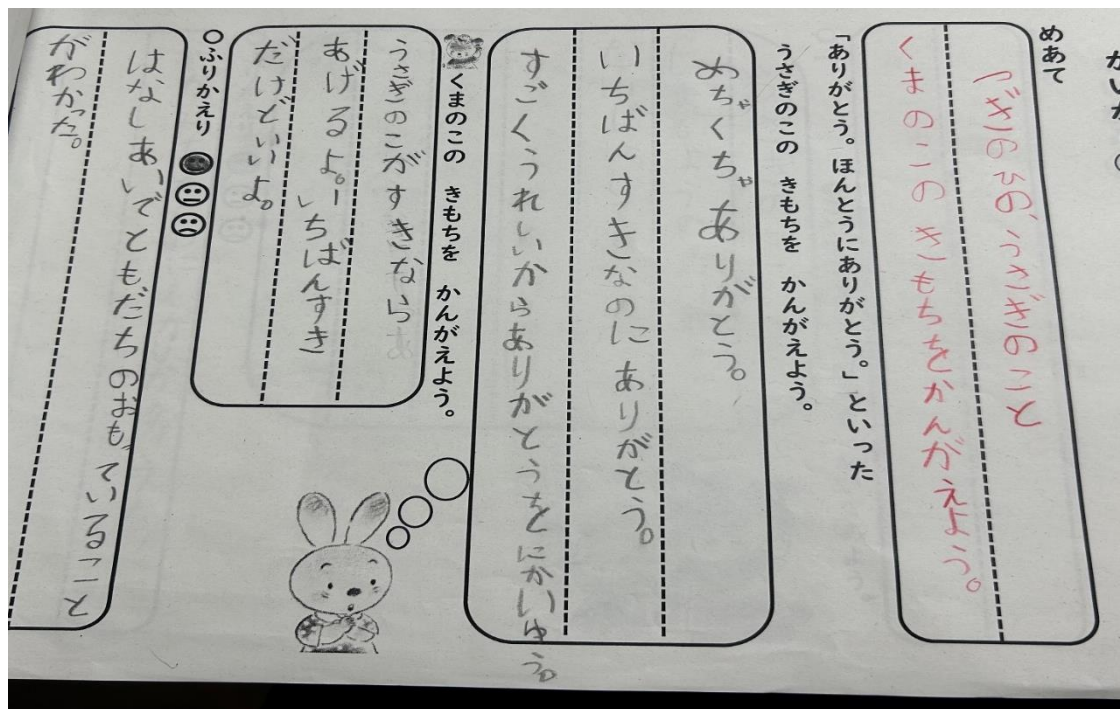 めあて
つぎの日の、うさぎのこと
くまのこの きもちをかんがえよう。
「ありがとう。ほんとうにありがとう。」といった
うさぎのこの きもちを かんがえよう。
めちゃくちゃありがとう。
いちばんすきなのに ありがとう。
すごくうれいからありがとうをにかいゆう。
くまのこの きもちを かんがえよう。
うさぎのこがすきなら
あげるよ。いちばんすき
だけどいいよ。
○ふりかえり
はなしあいでともだちのおもていること
がわかった。